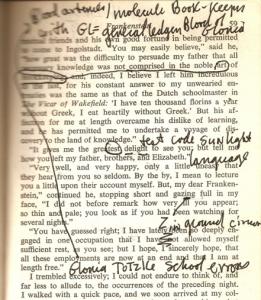 Blood arteries / molecule Book-Keeper
with GL= general ledger Blood of
Frankenstein 59
friends and his own good fortune in being permitted
to come to Ingolstadt. "You may easily believe," said he,
"how great was the difficulty to persuade my father that all
necessary knowledge was not comprised in the noble art of
and, indeed, I believe I left him incredulous
to the last, for his constant answer to my unwearied en-
treaties was the same as that of the Dutch schoolmaster in
The Vicar of Wakefield: 'I have ten thousand florins a year
without Greek, I eat heartily without Greek.' But his af-
fection for me at length overcame his dislike of learning,
and he has permitted me to undertake a voyage of dis-
covery to the land of knowledge." text code sunlight
"It gives me the greatest delight to see you; but tell me
how you left my father, brothers, and Elizabeth." language
"Very well, and very happy, only a little uneasy that
they hear from you so seldom. By the by, I mean to lecture
you a little upon their account myself. But, my dear Franken-
stein," continued he, stopping short and gazing full in my
face, "I did not before remark how very ill you appear;
so thin and pale; you look as if you had been watching for
several nights."
"You have guessed right; I have lately been so deeply en-
gaged in one occupation that I have not allowed myself
sufficient rest, as you see; but I hope, I sincerely hope, that
all these employments are now at an end and that I am at
length free." Gloria Totzke School Errors
I trembled excessively; I could not endure to think of, and
far less to allude to, the occurrences of the preceding night.
I walked with a quick pace, and we soon arrived at my col-